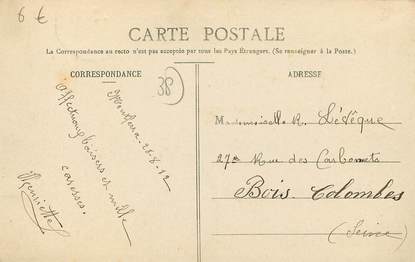 6 €
CARTE POSTALE
La Correspondance au recto n'est pas acceptée par tous les Pays Étrangers. (Se renseigner à la Poste.)
CORRESPONDANCE
38
25-8-12
Affectueux baisers et mille
caresses.
Henriette
ADRESSE
Mademoiselle R. Lévêque
27 Rue des Carbonnets
Bois-Colombes
(Seine)